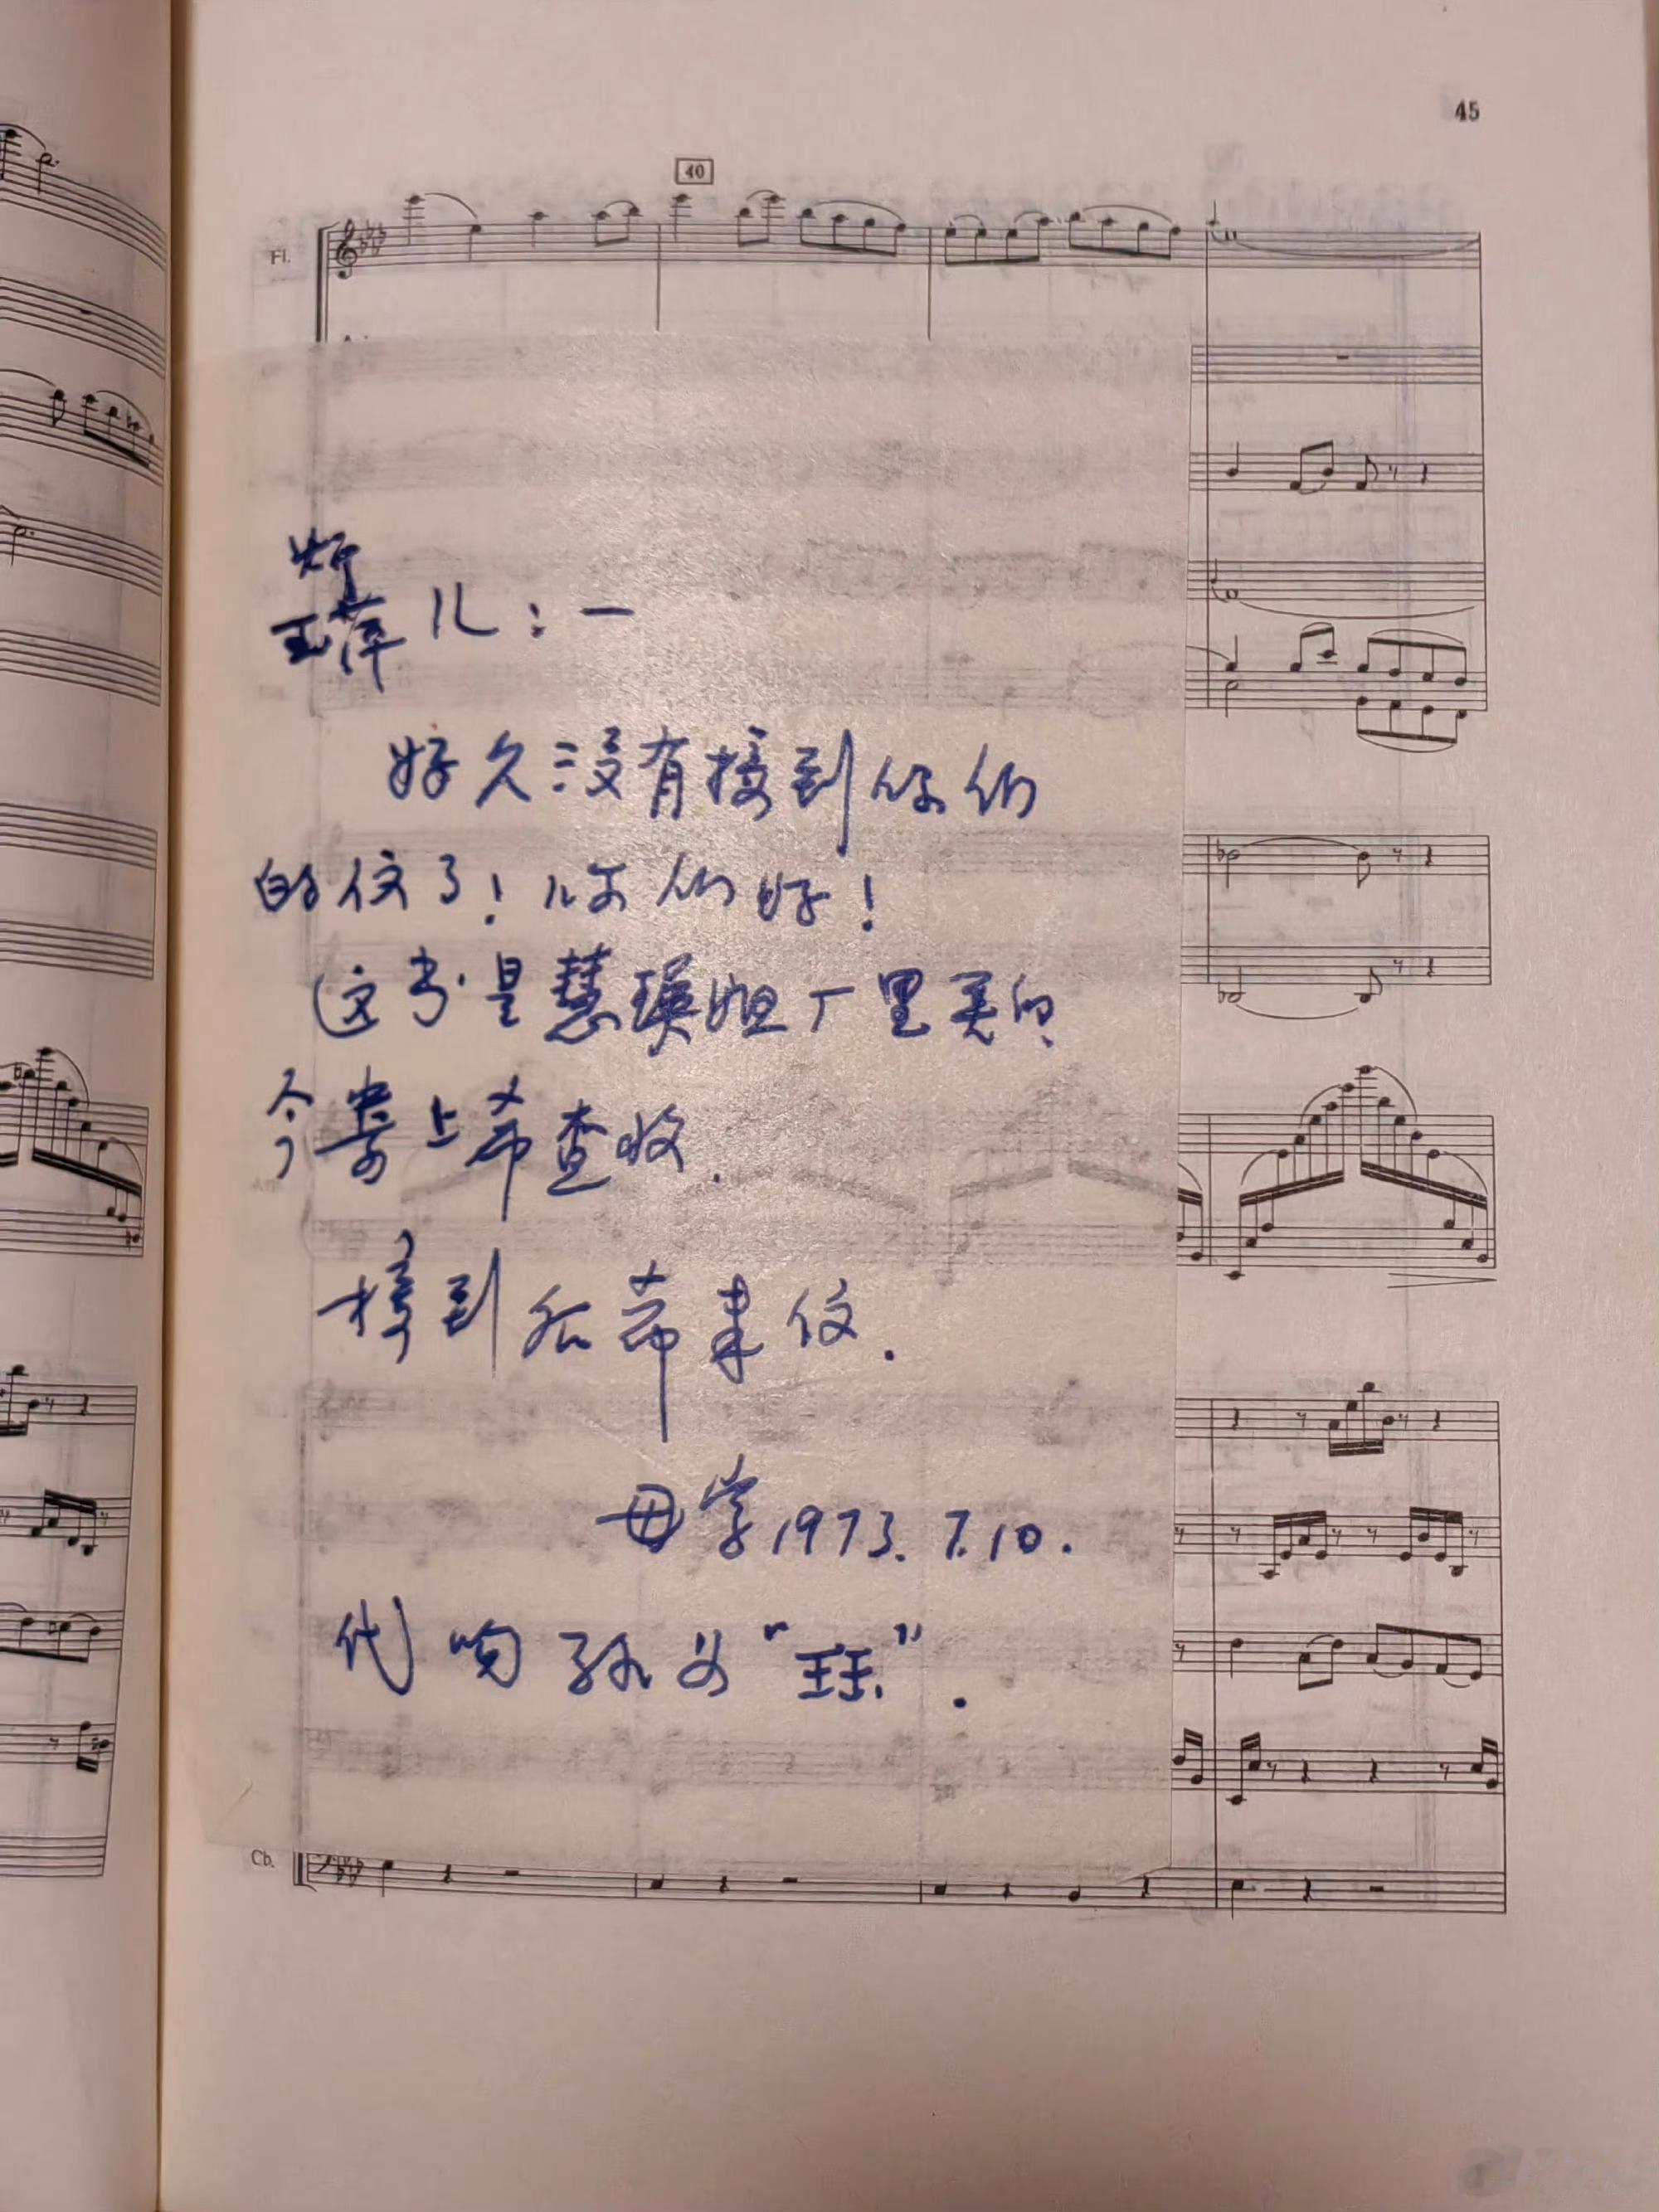 45
40
Fl.
炉
玉萍 儿：一
好久没有接到你们
的信了！你们好！
这书是慧瑛姐厂里买的
今寄上希查收.
接到后希来信.
母字 1973.7.10.
代吻孙女“玨”.
Cb.